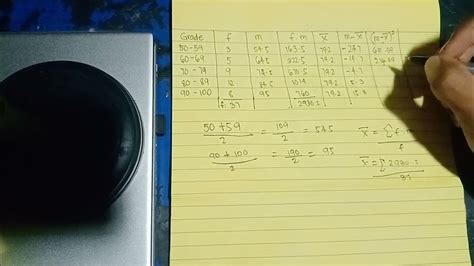 Grade f m f.m x̄ m-x̄ (m-x̄)²
50-59 3 54.5 163.5 79.2 -24.7
60-69 5 64.5 322.5 79.2 -14.7
70-79 9 74.5 670.5 79.2 -4.7
80-89 12 84.5 1014 79.2 5.3
90-100 8 95 760 79.2 15.8
f: 37 2930.5
50+59 / 2 = 109 / 2 = 54.5
90+100 / 2 = 190 / 2 = 95
x̄ = Σ f.m / f
x̄ = Σ 2930.5 / 37